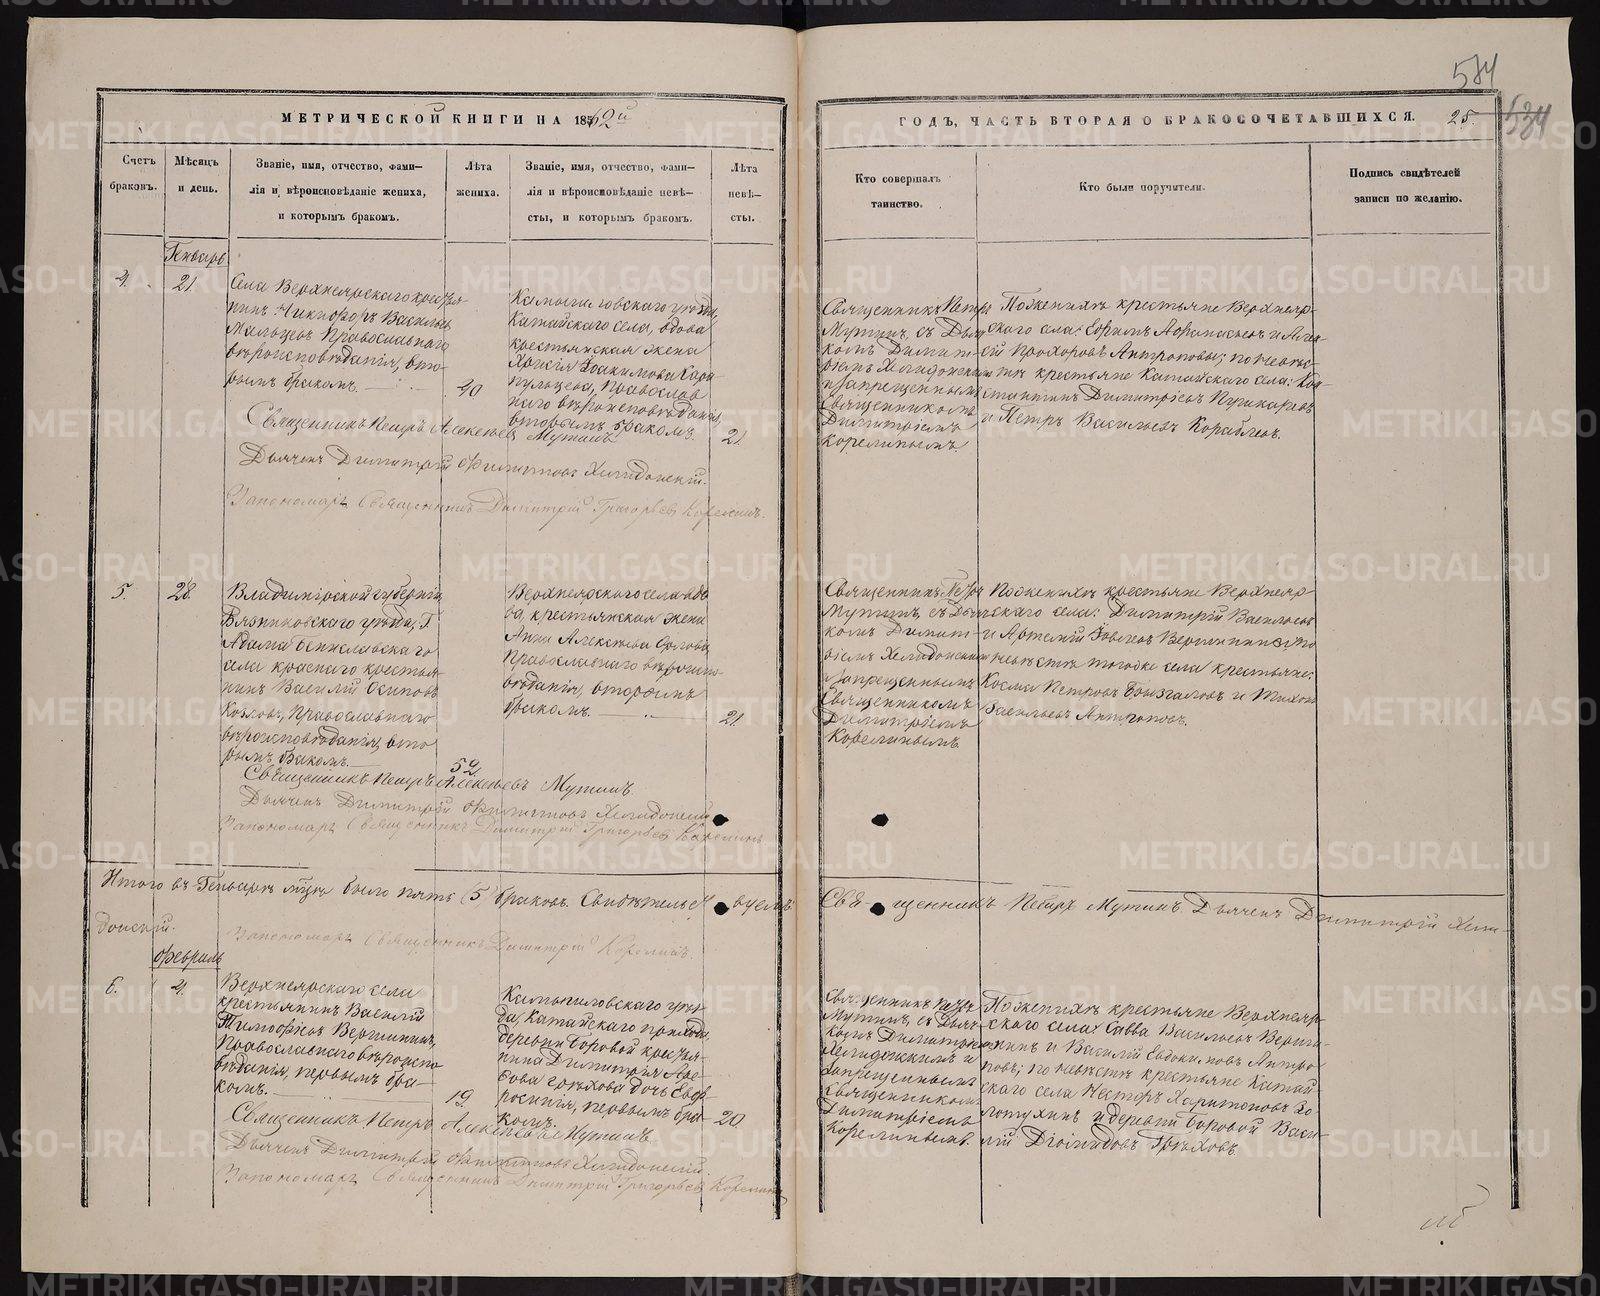 584
МЕТРИЧЕСКОЙ КНИГИ НА 1862й
ГОДЪ, ЧАСТЬ ВТОРАЯ О БРАКОСОЧЕТАВШИХСЯ. 25.
534
Счетъ браковъ.
Мѣсяцъ и день.
Званіе, имя, отчество, фами-
лія и вѣроисповѣданіе жениха,
и которымъ бракомъ.
Лѣта
жениха.
Званіе, имя, отчество, фами-
лія и вѣроисповѣданіе невѣ-
сты, и которымъ бракомъ.
Лѣта
невѣ-
сты.
Кто совершалъ
таинство.
Кто были поручители.
Подпись свидѣтелей
записи по желанію.
Генварь
4.
21.
Села Верхнеярскаго кресть-
янинъ Никифоръ Васильевъ
Мальцевъ Православнаго
вѣроисповѣданія, вто-
рымъ бракомъ.
40
Камышловскаго уѣзда,
Катайскаго села, вдова
крестьянская жена
пульцева, Православ
наго вѣроисповѣданія,
вторымъ бракомъ.
21.
Священникъ Петръ
Мутинъ, съ Дьяч
комъ Димит-
ріемъ Хелидонскимъ
и запрещеннымъ
Священникомъ
Димитріемъ
Корелинымъ.
По женихѣ крестьяне Верхнеяр-
скаго села: Ефимъ Афанасьевъ и Алек
сѣй Прохоровъ Антроповы; по невѣс-
тѣ крестьяне Катайскаго села: Кон
стантинъ Димитріевъ Пушкаревъ
и Петръ Васильевъ Кораблевъ.
Священникъ Петръ Алексѣевъ Мутинъ.
Дьячекъ Димитрій Филипповъ Хелидонскій.
Запономаря Священникъ Димитрій Григорьевъ Корелинъ.
5.
28.
Владимірской губерніи,
Вязниковскаго уѣзда, Г.
села краснаго крестья
нинъ Василій Осиповъ
Козловъ, Православнаго
вѣроисповѣданія, вто
рымъ бракомъ.
52
Верхнеярскаго села вдо
ва, крестьянская жена
Анна Алексѣева Орлова
Православнаго вѣроиспо-
вѣданія, вторымъ
бракомъ.
21.
Священникъ Петръ
Мутинъ, съ Дьяч
комъ Димит-
ріемъ Хелидонскимъ
и запрещеннымъ
Священникомъ
Димитріемъ
Корелинымъ
По женихѣ крестьяне Верхнеяр
скаго села: Димитрій Васильевъ
и Артемій Іовлевъ Вершинины; по
невѣстѣ тогоже села крестьяне:
Косма Петровъ Брызгаловъ и Тихонъ
Васильевъ Антроповъ.
Священникъ Петръ Алексѣевъ Мутинъ.
Дьячекъ Димитрій Филипповъ Хелидонскій
Запономаря Священникъ Димитрій Григорьевъ Корелинъ
Итого въ Генварѣ мѣцѣ было пять (5) браковъ. Свидѣтельствуемъ
Священникъ Петръ Мутинъ. Дьячекъ Димитрій Хели-
донскій.
Запономаря Священникъ Димитрій Корелинъ.
Февраль
6.
4.
Верхнеярскаго села
крестьянинъ Василій
Тимофѣевъ Вершининъ,
Православнаго вѣроиспо
вѣданія, первымъ бра-
комъ.
19.
Камышловскаго уѣз-
да, Катайскаго прихода,
деревни Боровой крестья-
нина Димитрія
Грѣхова дочь Евф-
росинія, первымъ бра-
комъ.
20.
Священникъ Петръ
Мутинъ, съ Дьяч-
комъ Димитріемъ
Хелидонскимъ и
запрещеннымъ
Священникомъ
Димитріемъ
Корелинымъ.
По женихѣ крестьяне Верхнеяр-
скаго села: Савва Васильевъ Верши-
нинъ и Василій Евдокимовъ Антро-
повъ; по невѣстѣ крестьяне Катай-
скаго села Несторъ Харитоновъ Зо-
лотухинъ и деревни Боровой Васи-
лій Діомидовъ Грѣховъ.
Священникъ Петръ Алексѣевъ Мутинъ.
Дьячекъ Димитрій Филипповъ Хелидонскій.
Запономаря Священникъ Димитрій Григорьевъ Корелинъ
METRIKI.GASO-URAL.RU